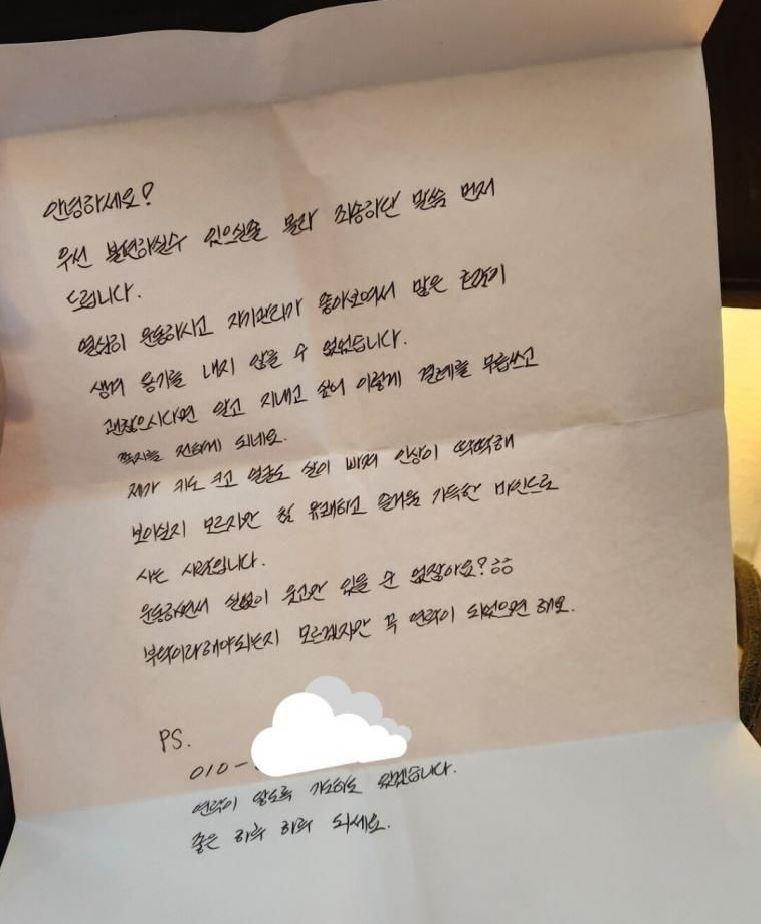 안녕하세요?
우선 불편하실수 있으실줄 몰라 죄송하단 말씀 먼저
드립니다.
열심히 운동하시고 자기관리가 좋아보여서 많은
생겨 용기를 내지 않을 수 없었습니다.
괜찮으시다면 알고 지내고 싶어 이렇게 결례를 무릅쓰고
쪽지를 전하게 되네요.
제가 키도 크고 얼굴도 살이 빠져 인상이 딱딱해
보이실지 모르지만 참 유쾌하고 즐거움 가득한 마인드로
사는 사람입니다.
운동하면서 실없이 웃고만 있을 수 없잖아요?ㅎㅎ
부탁이라해야되는지 모르겠지만 꼭 연락이 되었으면 해요.
PS.
010-
연락이 닿도록 기도하고 있겠습니다.
좋은 하루 하루 되세요.